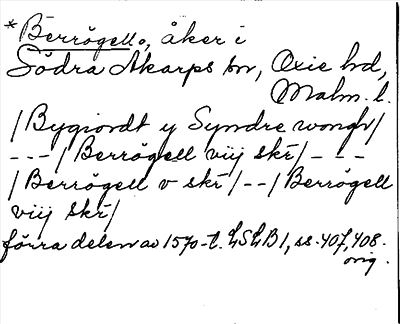 *Berrögell°, åker i
Södra Åkarps sn, Oxie hd,
Malm. l.
/Bygiordt y Syndre wongh/
---/Berrögell viij skr/---
/Berrögell v skr/--/Berrögell
viij skr/
förra delen av 1570-t. LSLB1, ss. 407, 408.
orig.